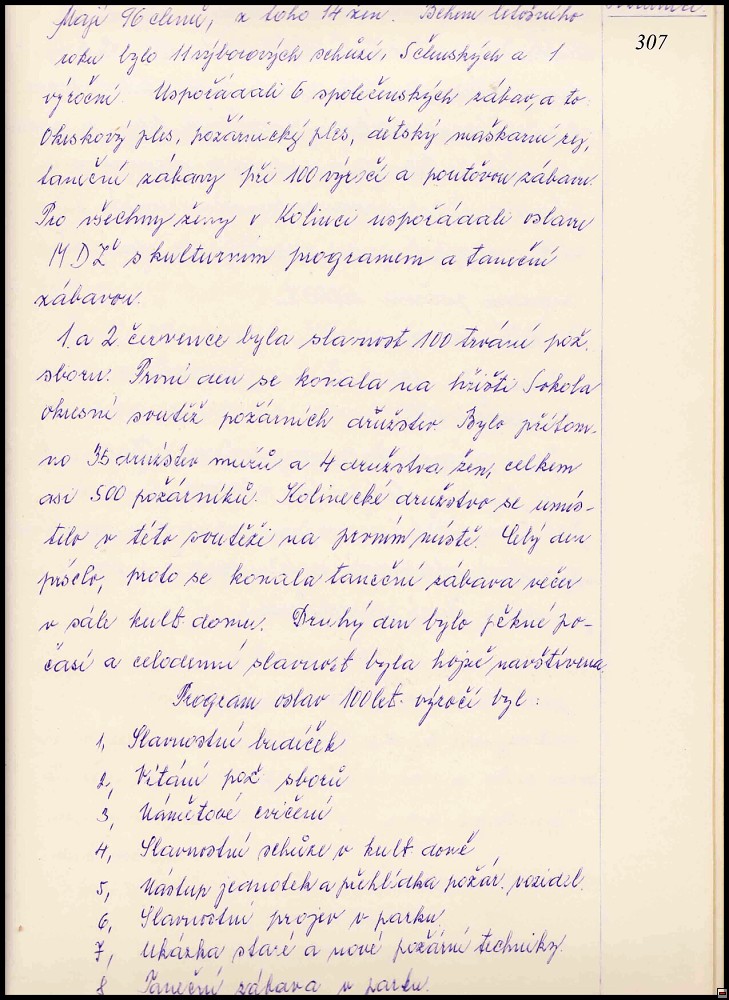 Mají 96 členů, z toho 14 žen. Během letošního
307
roku bylo 11 výborových schůzí, 5 členských a 1
výroční. Uspořádali 6 společenských zábav, a to:
Okrskový ples, požárnický ples, dětský maškarní rej,
taneční zábavy při 100 výročí a pouťovou zábavu.
Pro všechny ženy v Kolinci uspořádali oslavu
MDŽ s kulturním programem a taneční
zábavou.
1. a 2. července byla slavnost 100 trvání pož.
sboru. První den se konala na hřišti Sokola
okresní soutěž požárních družstev. Bylo přítom-
no 35 družstev mužů a 4 družstva žen, celkem
asi 500 požárníků. Kolinecké družstvo se umís-
tilo v této soutěži na prvním místě. Celý den
pršelo, proto se konala taneční zábava večer
v sále kult. domu. Druhý den bylo pěkné po-
časí a celodenní slavnost byla hojně navštívena.
Program oslav 100let. výročí byl:
1, Slavnostní budíček
2, Vítání pož. sborů
3, Námětové cvičení
4, Slavnostní schůze v kult. domě
5, Nástup jednotek a přehlídka požár. vozidel.
6, Slavnostní projev v parku
7, Ukázka staré a nové požární techniky.
8 Taneční zábava v parku.